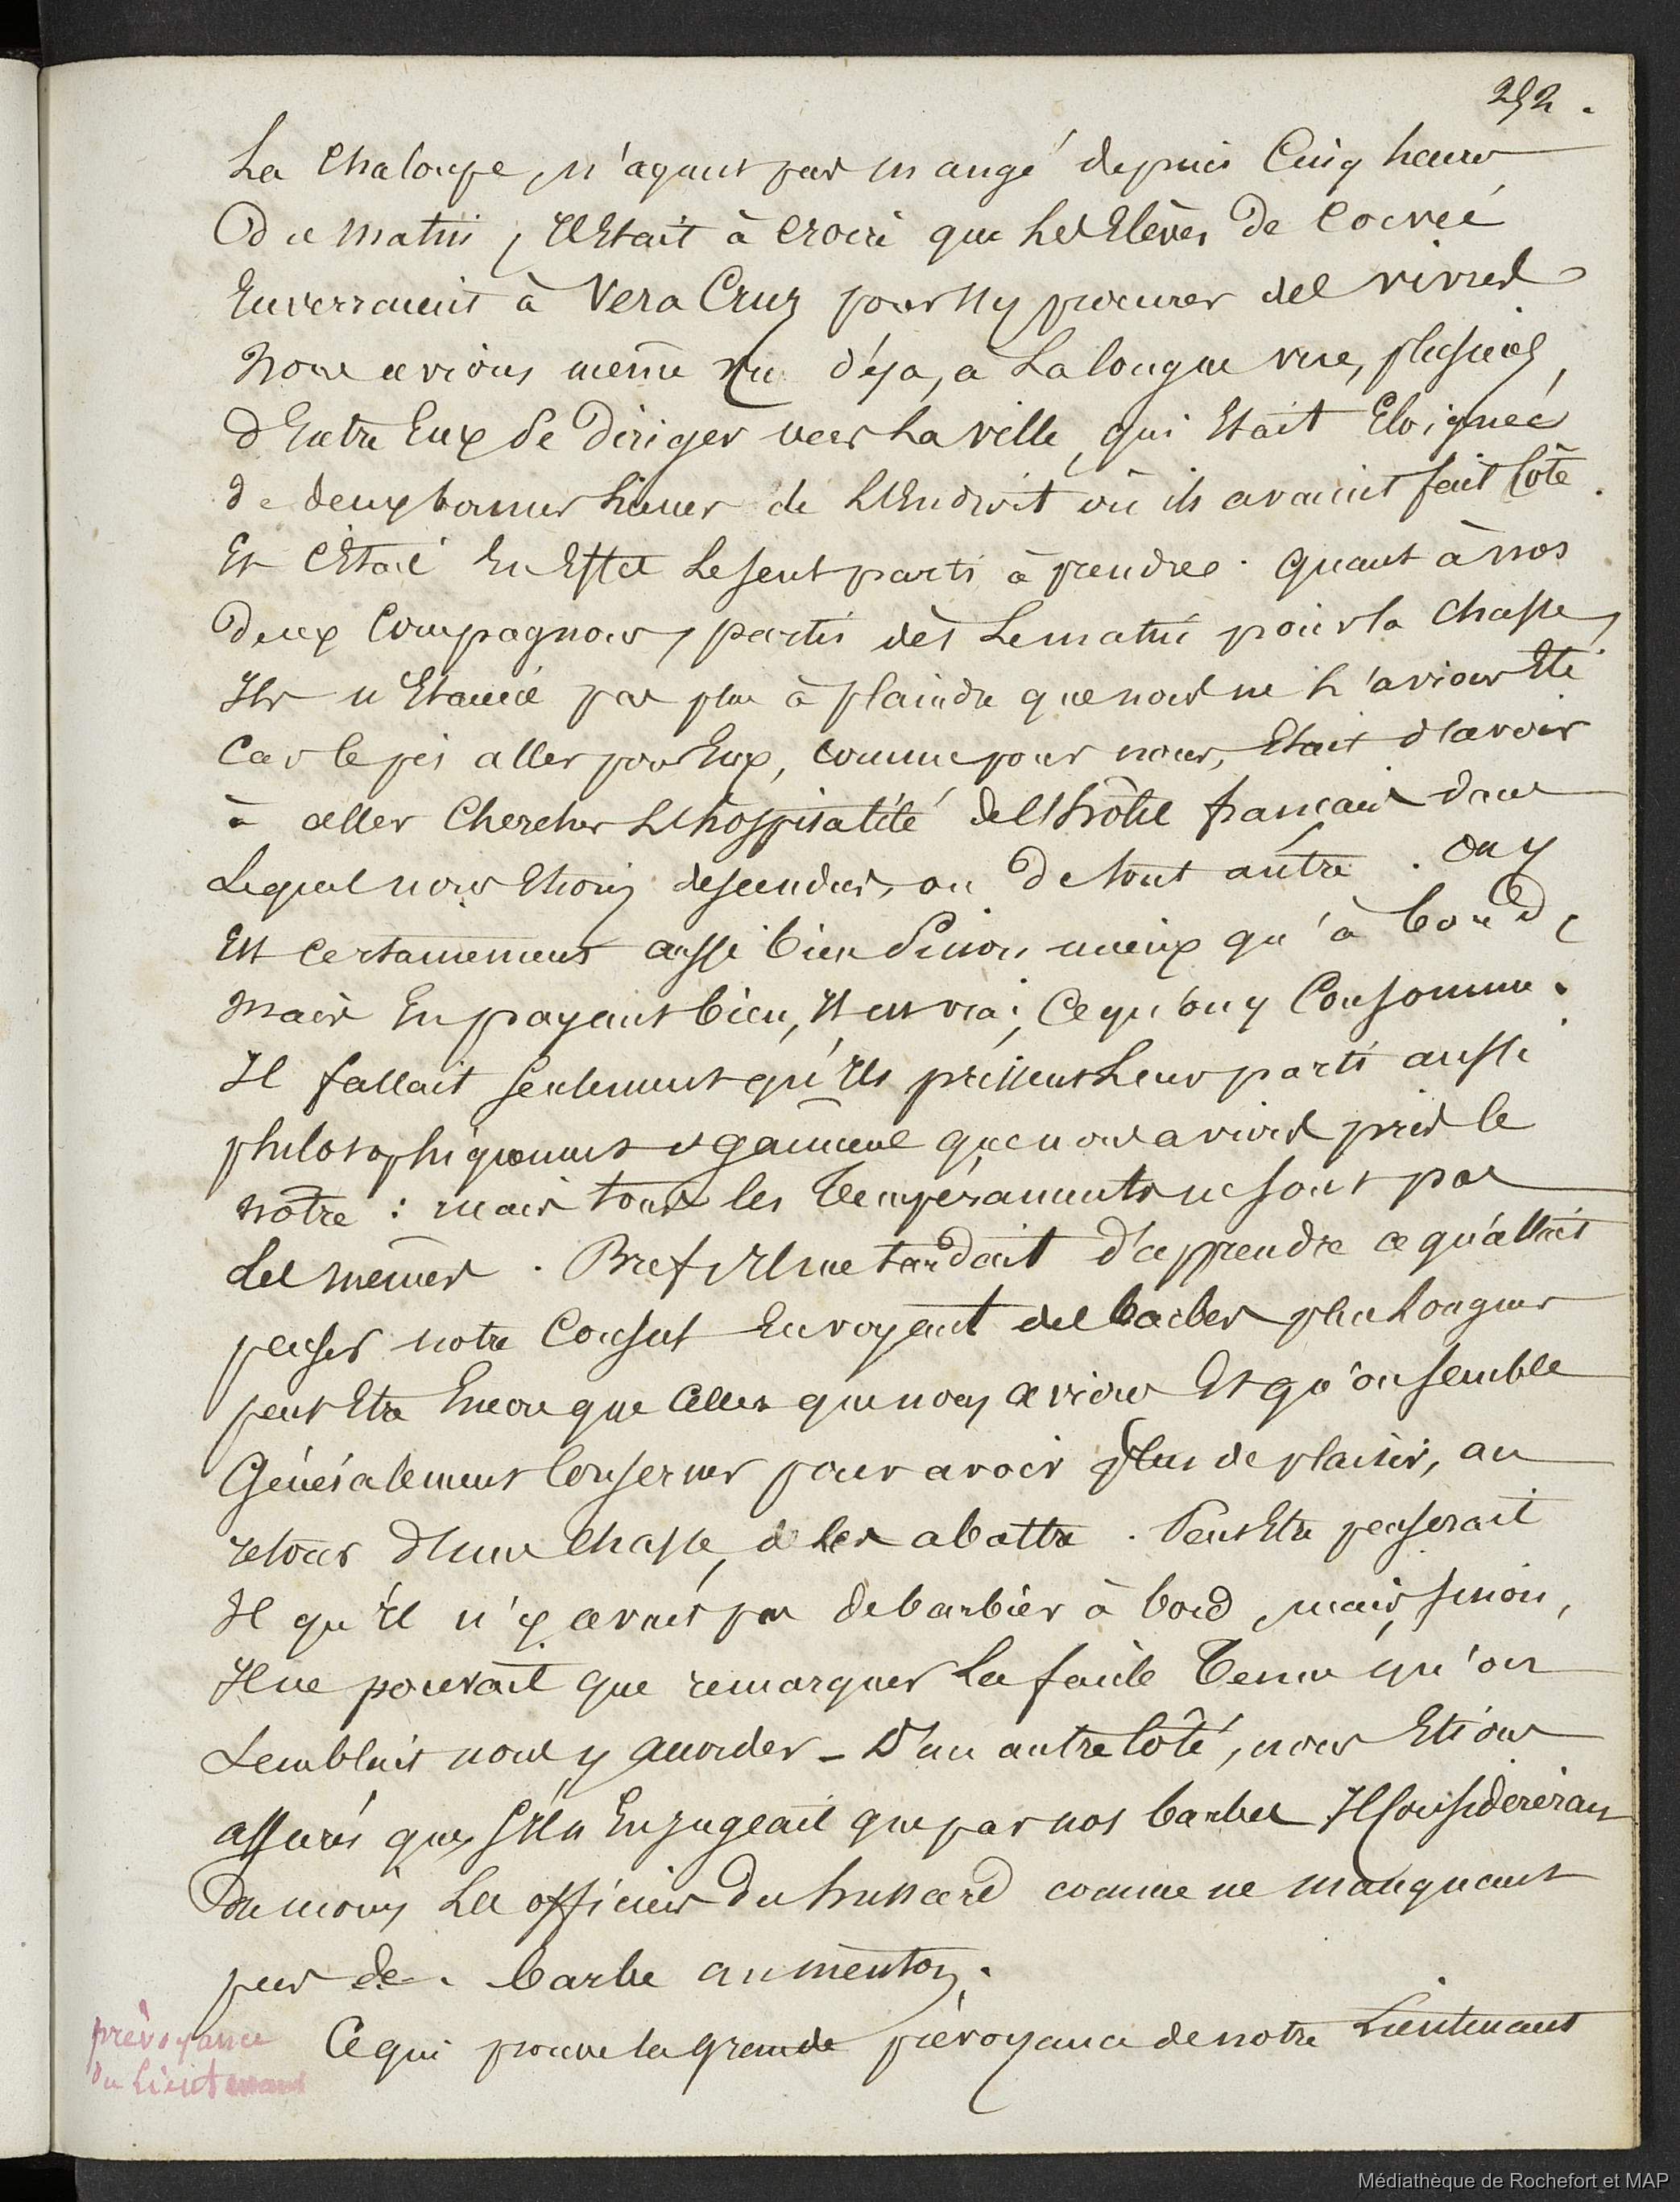 252.
La Chaloupe, n'ayant pas mangé depuis Cinq heures
du matin, Il Etait à croire que les Elèves de corvée
Enverraient à Vera Cruz pour s'y procurer des vivres
Nous avions même vu déja, a La longue vue, plusieurs,
d'Entre Eux se diriger vers La ville, qui Etait Eloignée
de deux bonnes lieues de L'Endroit où ils avaient fait Côte.
Et C'Etait En Effet Le seul parti à prendre. Quant à nos
deux Compagnons, partis dès Le matin pour la Chasse,
Ils n'Etaient pas plus à plaindre que nous ne L'avions Eté
Car le pis aller pour Eux, comme pour nous, Etait d'avoir
à aller Chercher L'hospitalité de l'hôtel français dans
Lequel nous Etions descendus, ou de tout autre. On y
Est Certainement aussi bien sinon mieux qu'à bord,
Mais En payant bien, Il est vrai, Ce qu'on y Consomme.
Il fallait seulement qu'Ils prissent Leur parti aussi
philosophiquement et gaiment que nous avions pris le
notre : mais tous les Tempéraments ne sont pas
Les mêmes. Bref, Il me tardait d'apprendre ce qu'allait
penser notre Consul En voyant des barbes plus Longues
peut Etre Encore que Celles que nous avions Et qu'on semble
Généralement Conserver pour avoir plus de plaisir, au
retour d'une Chasse, à les abattre. Peut Etre penserait
Il qu'Il n'y avait pas de barbier à bord, mais, sinon,
Il ne pouvait que remarquer La facile Tenue qu'on
Semblait nous y accorder - D'un autre Côté, nous Etions
assurés que, s'Il n'En jugeait que par nos barbes Il considérerait
du moins Les officiers du hussard comme ne manquant
pas de barbe au menton.
prévoyance
du Lieutenant
Ce qui prouve la grande prévoyance de notre Lieutenant
Médiathèque de Rochefort et MAP